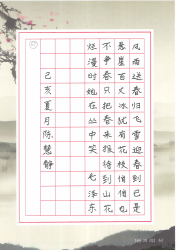 风雨送春归飞雪迎春到已是
悬崖百丈冰犹有花枝俏俏也
不争春只把春来报待到山花
烂漫时她在丛中笑 毛泽东
己亥夏月陈慧静